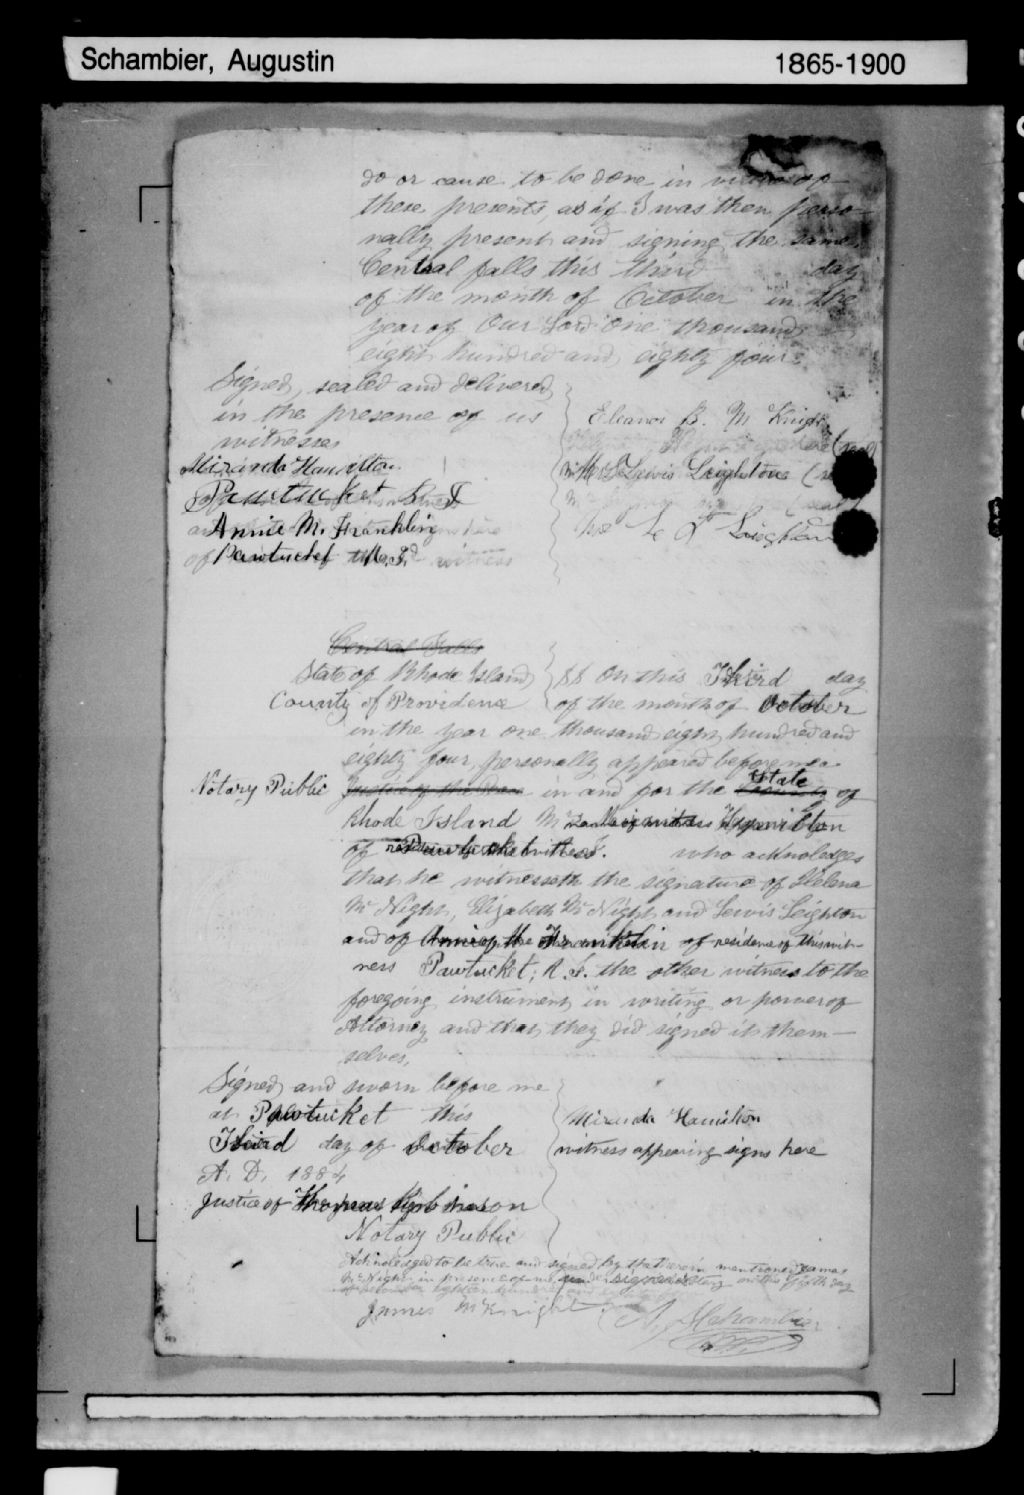 Schambier, Augustin 1865-1900
do or cause to be done in virtue of
these presents, as if I was then perso-
nally present and signing the same.
Central falls this third day
of the month of October in the
year of Our Lord One thousand
eight hundred and eighty four.
Signed, sealed and delivered
in the presence of us
witnesses
Eleanor B. Mc Knight
Miranda Hamilton
Lewis Leightone
Pawtucket R I
Annie M. Franklin
of Pawtucket R. I. witness
Central Falls
State of Rhode Island SS On this Third day
County of Providence of the month of October
in the year one thousand eight hundred and
eighty four, personally appeared before me
Notary Public Justice of the Peace in and for the County State of
Rhode Island Hamilton
of Pawtucket R. I. who acknoledges
that he witnesseth the signature of Helena
Mc Night, Elizabeth Mc Night and Lewis Leighton
and of Annie M. Franklin of residence of this wit-
ness Pawtucket, R. I. the other witness to the
foregoing instrument in writing or power of
Attorney and that they did signed it them-
selves.
Signed and sworn before me
at Pawtucket this Miranda Hamilton
Third day of October witness appearing signs here
A. D. 1884
Justice of Thomas Robinson
Notary Public
Acknoledged to be true and signed by the therein mentioned James
Mc Night in presence of me on this day
James McKnight A. Schambier